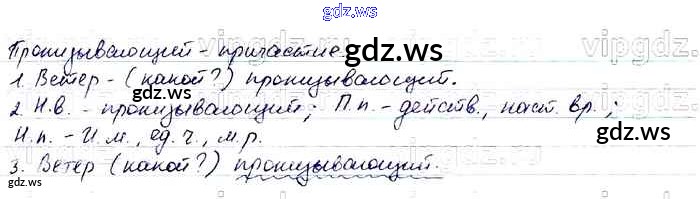 gdz.ws
Пронизывающий - причастие
gdz.ws
vipgdz.ws
1. Ветер - (какой?) пронизывающий.
2. Н.в. - пронизывающий; П.п. - действ., наст. вр.;
gdz.ws
Н.п. - И.п., ед.ч., м.р.
gdz.ws
3. Ветер (какой?) пронизывающий.
gdz.ws
gdz.ws